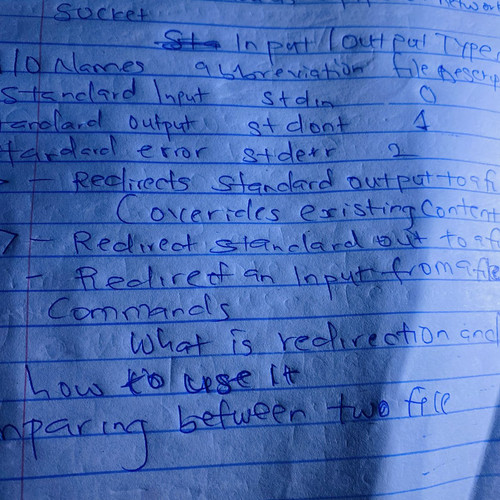 Socket
Input / Output Type
I/O Names abbreviation file Descrip
Standard Input stdin 0
tandard output stdout 1
tandard error stderr 2
> - Redirects standard output to a f
Coverides existing Content
> - Redirect standard out to a f
- Redirect an Input from a file
Commands
What is redirection and
how to use it
mparing between two file